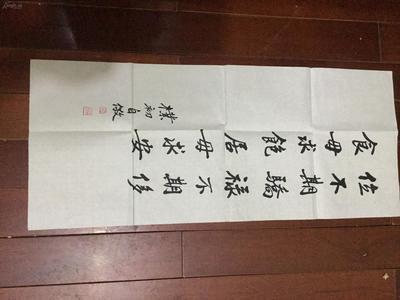 位不期驕祿不期侈
食毋求飽居毋求安
樸初自儆